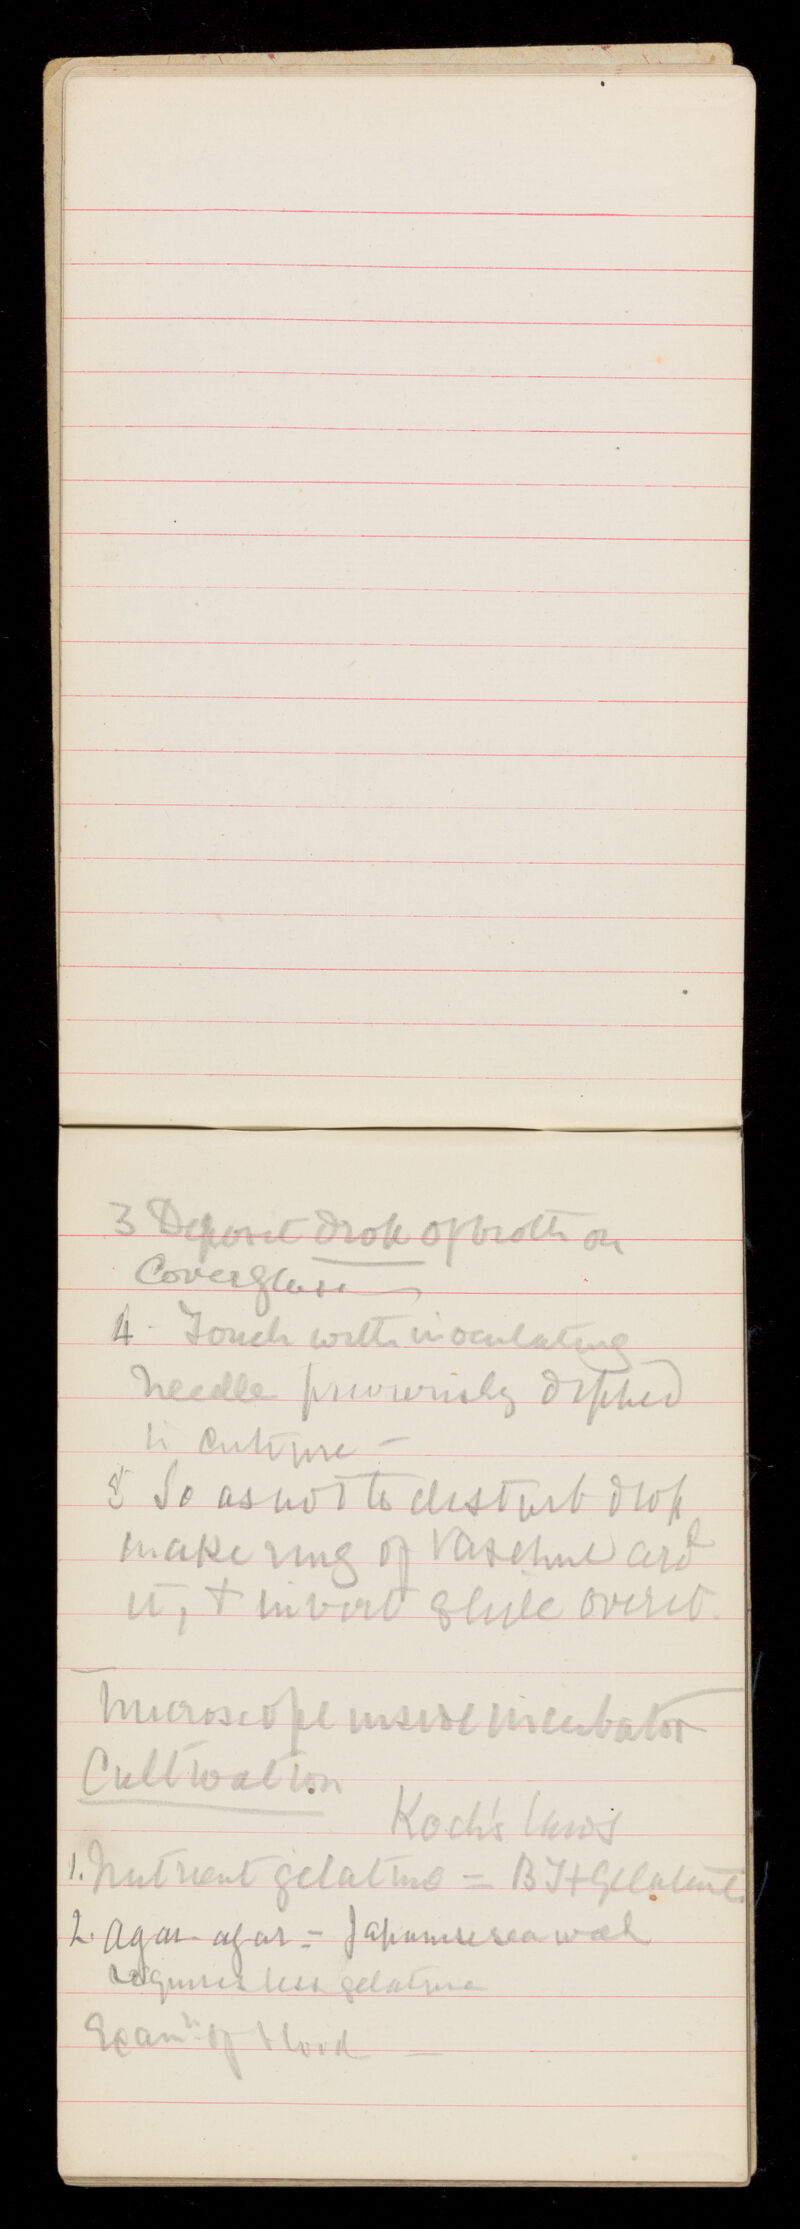 3 Deposit drop of broth on
Coverglass
4 - Touch with inoculating
needle previously dipped
in culture -
5 So as not to disturb drop
make ring of Vaseline ard
it, + invert slide over it.
Microscope inside incubator
Cultivation
Koch's laws
1. Nutrient gelatine = BJ + Gelatine
2. Agar-agar = Japanese sea weed
requires less gelatine
Examn. of blood -